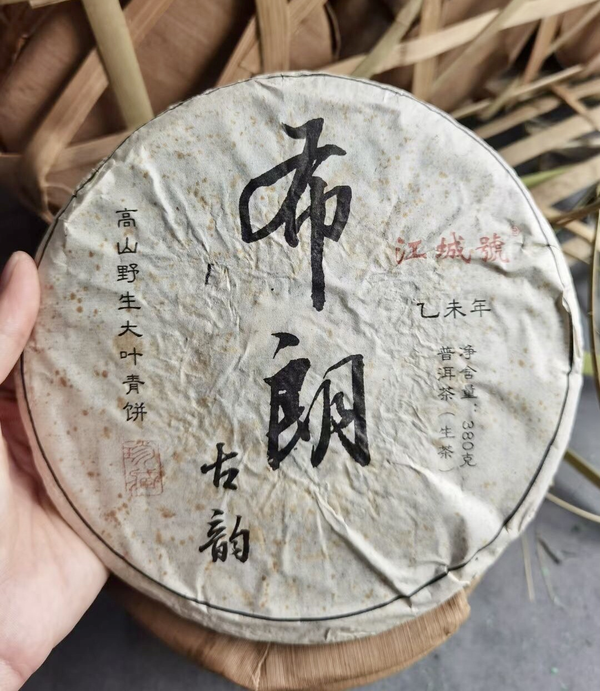 布朗
古韵
高山野生大叶青饼
珍藏
江城號
乙未年
净含量：380克
普洱茶（生茶）